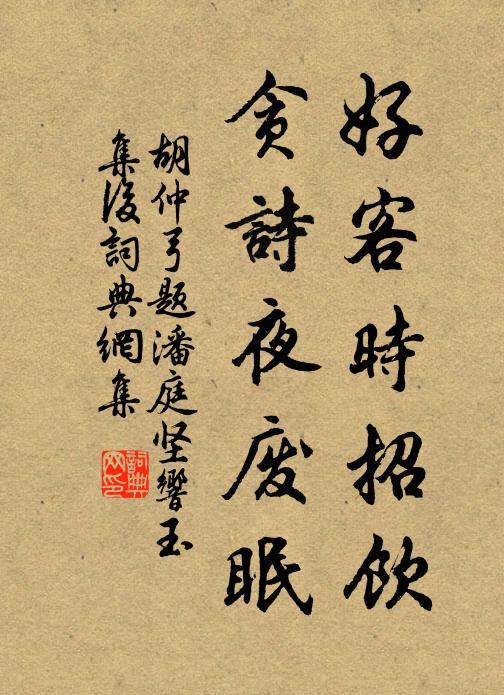 好客時招飲
貪詩夜废眠
胡仲弓题潘庭坚響玉
集後詞典網集
詞典网印